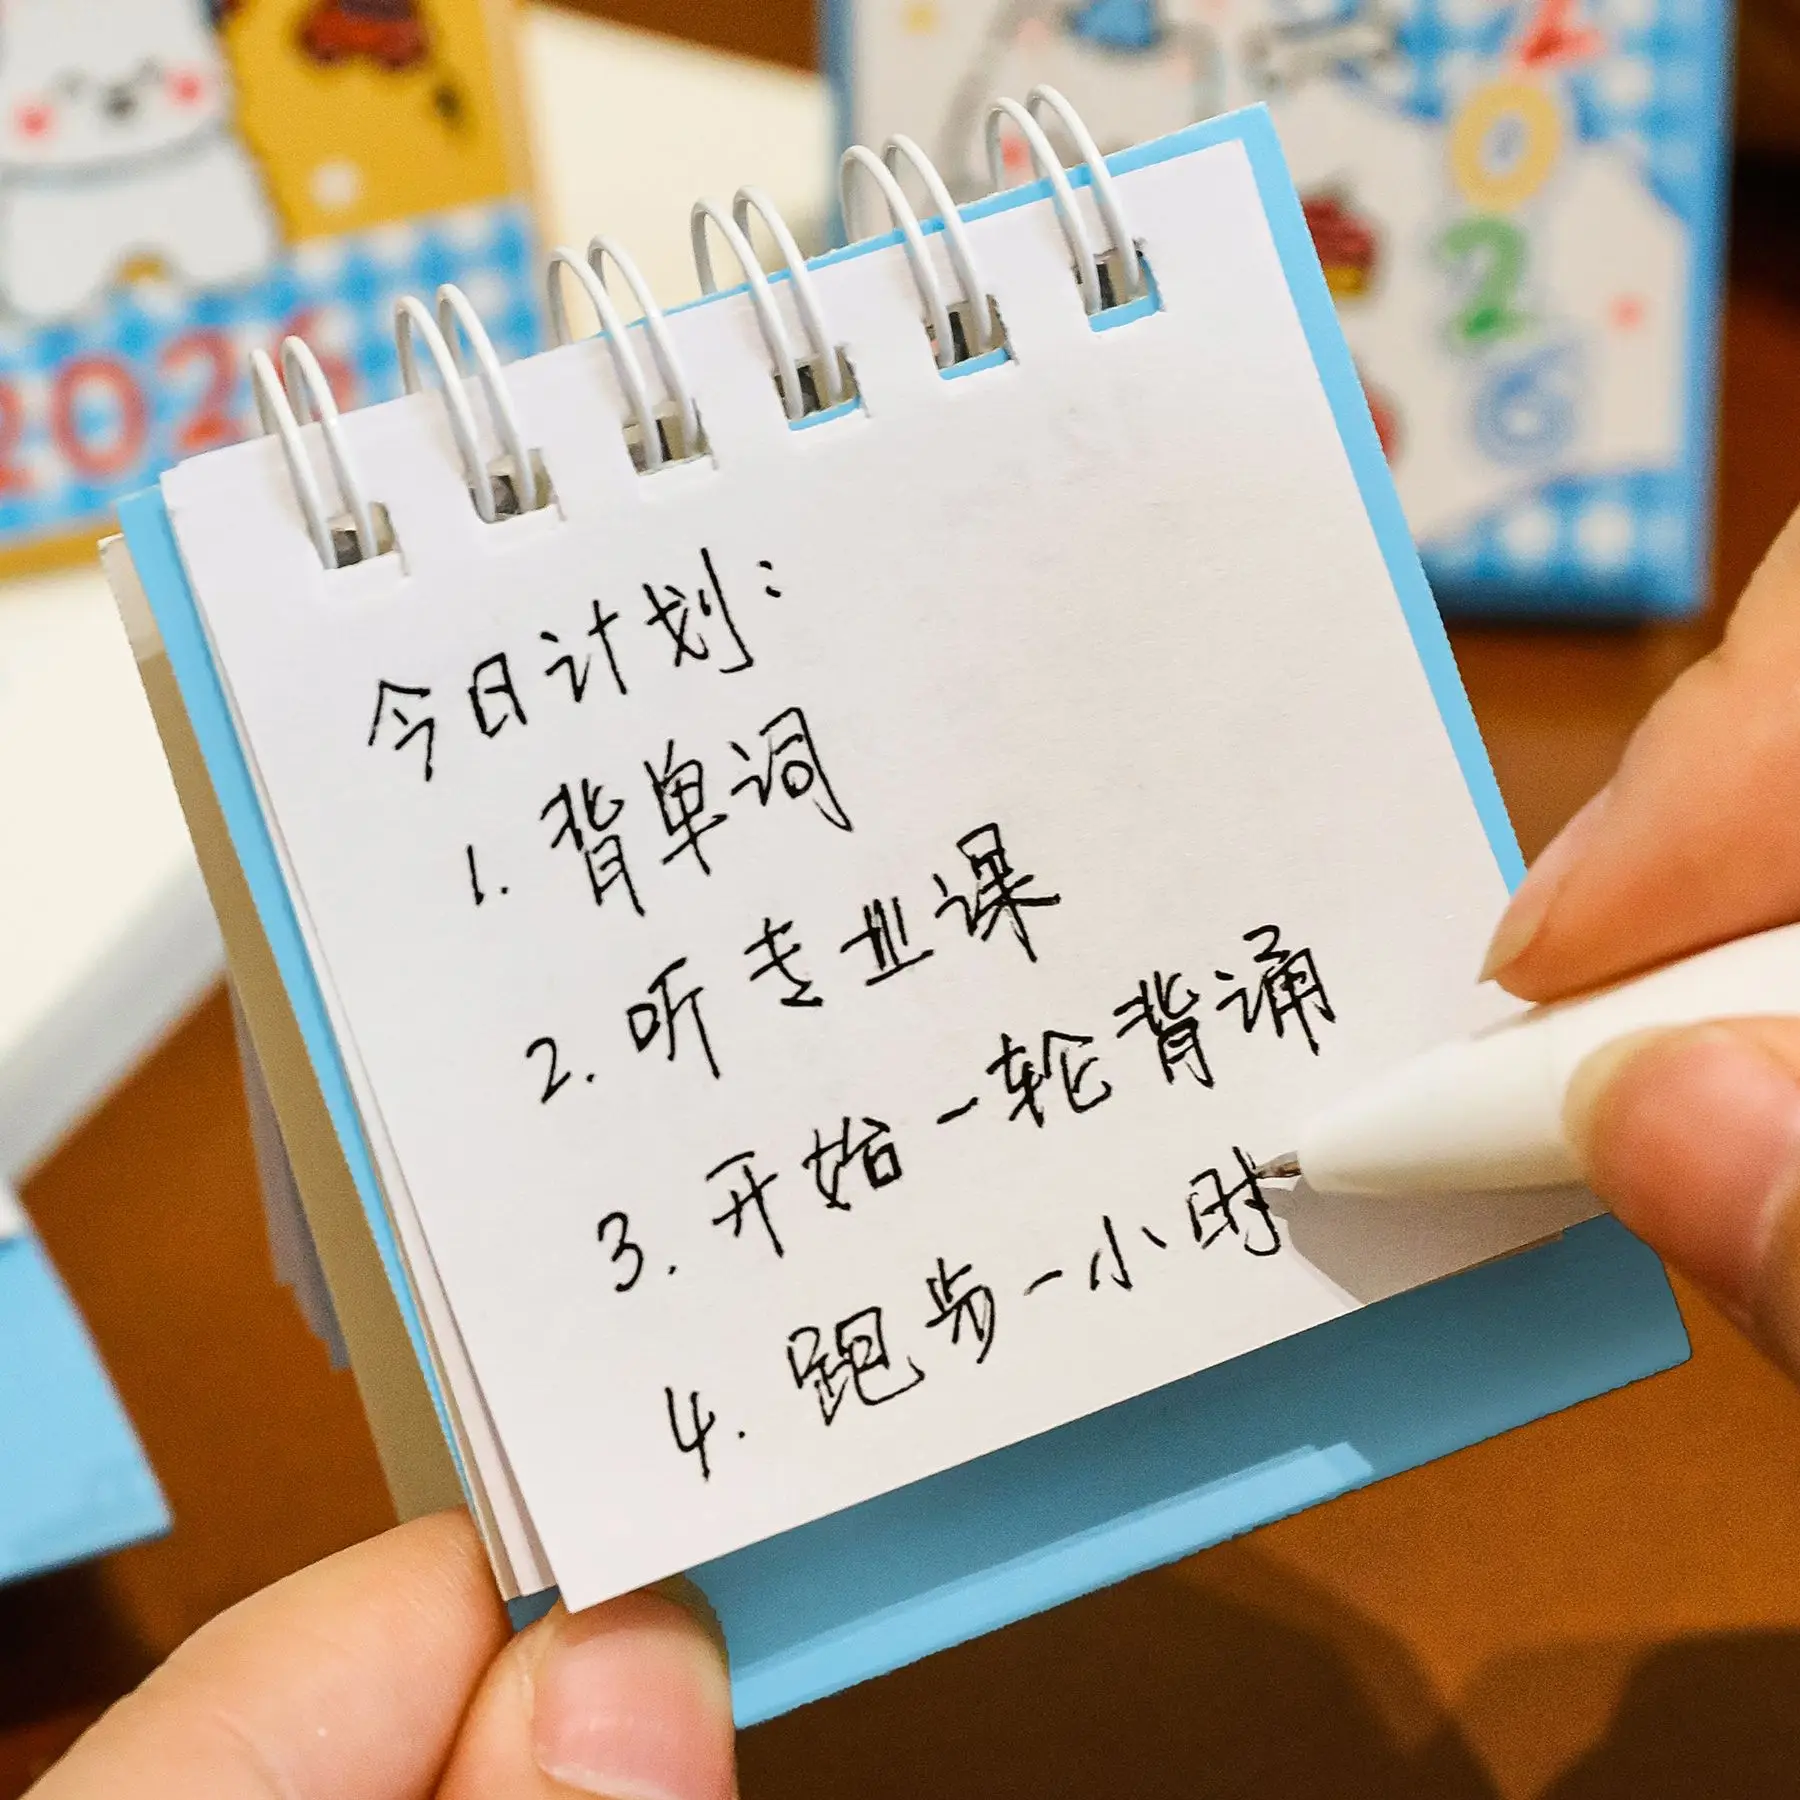 今日计划:
1. 背单词
2. 听专业课
3. 开始一轮背诵
4. 跑步一小时
2026
2026